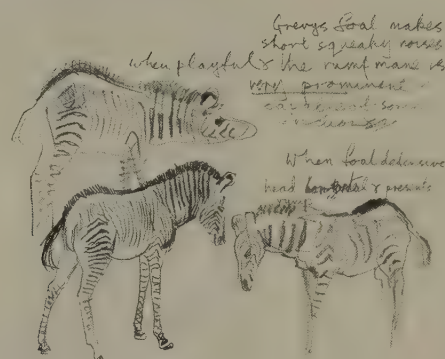 Grevys foal makes
short squeaky noises
when playful & the rump mane is
very prominent
When foal defensive
head & presents